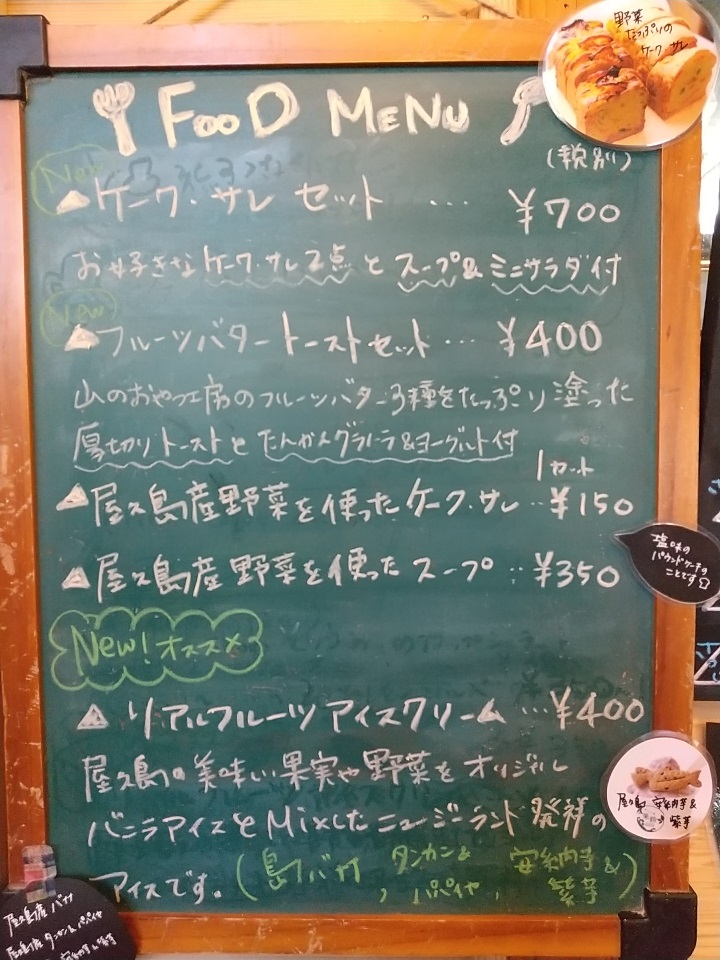 野菜
たっぷりの
ケーク・サレ
FOOD MENU
(税別)
New
ケーク・サレ セット ... ¥700
お好きなケーク・サレ2点 と スープ&ミニサラダ付
New
フルーツバタートーストセット ... ¥400
山のおやつ工房のフルーツバター3種をたっぷり塗った
厚切りトーストと たんかんグラノーラ&ヨーグルト付
1カット
屋久島産野菜を使ったケーク・サレ ‥¥150
塩味の
パウンドケーキの
ことです
屋久島産野菜を使ったスープ ‥¥350
New! オススメ
リアルフルーツアイスクリーム ...¥400
屋久島の美味い果実や野菜をオリジナル
バニラアイスとMixしたニュージーランド発祥の
アイスです。(島バナナ, タンカン&パパイヤ, 安納芋&紫芋)
屋久島 安納芋&
紫芋
屋久島産 バナナ
屋久島産 タンカン&パパイヤ